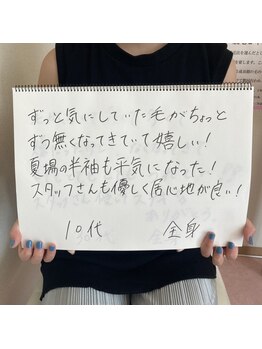 ずっと気にしていた毛がちょっと
ずつ無くなってきていて嬉しい！
夏場の半袖も平気になった！
スタッフさんも優しく居心地が良い！
10代 全身